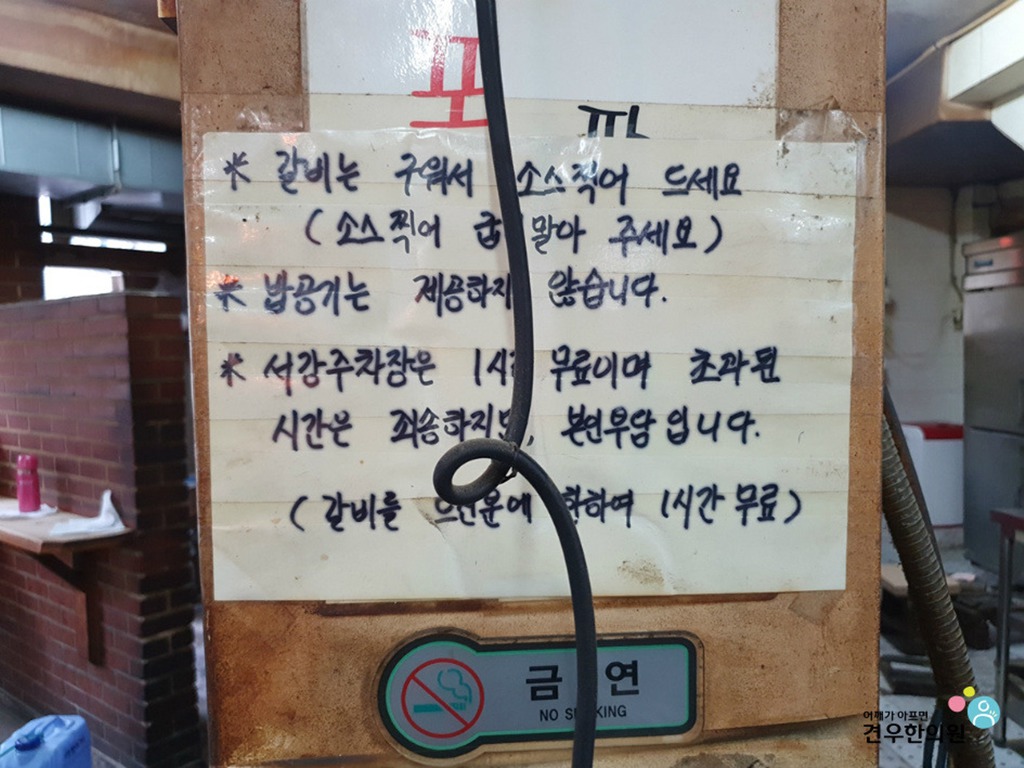 포
* 갈비는 구워서 소스찍어 드세요
(소스찍어 굽 말아 주세요)
* 밥공기는 제공하지 않습니다.
* 서강주차장은 1시 무료이며 초과된
시간은 죄송하지만, 본인부담 입니다.
(갈비를 한하여 1시간 무료)
금 연
NO SMOKING
어깨가 아프면
견우한의원